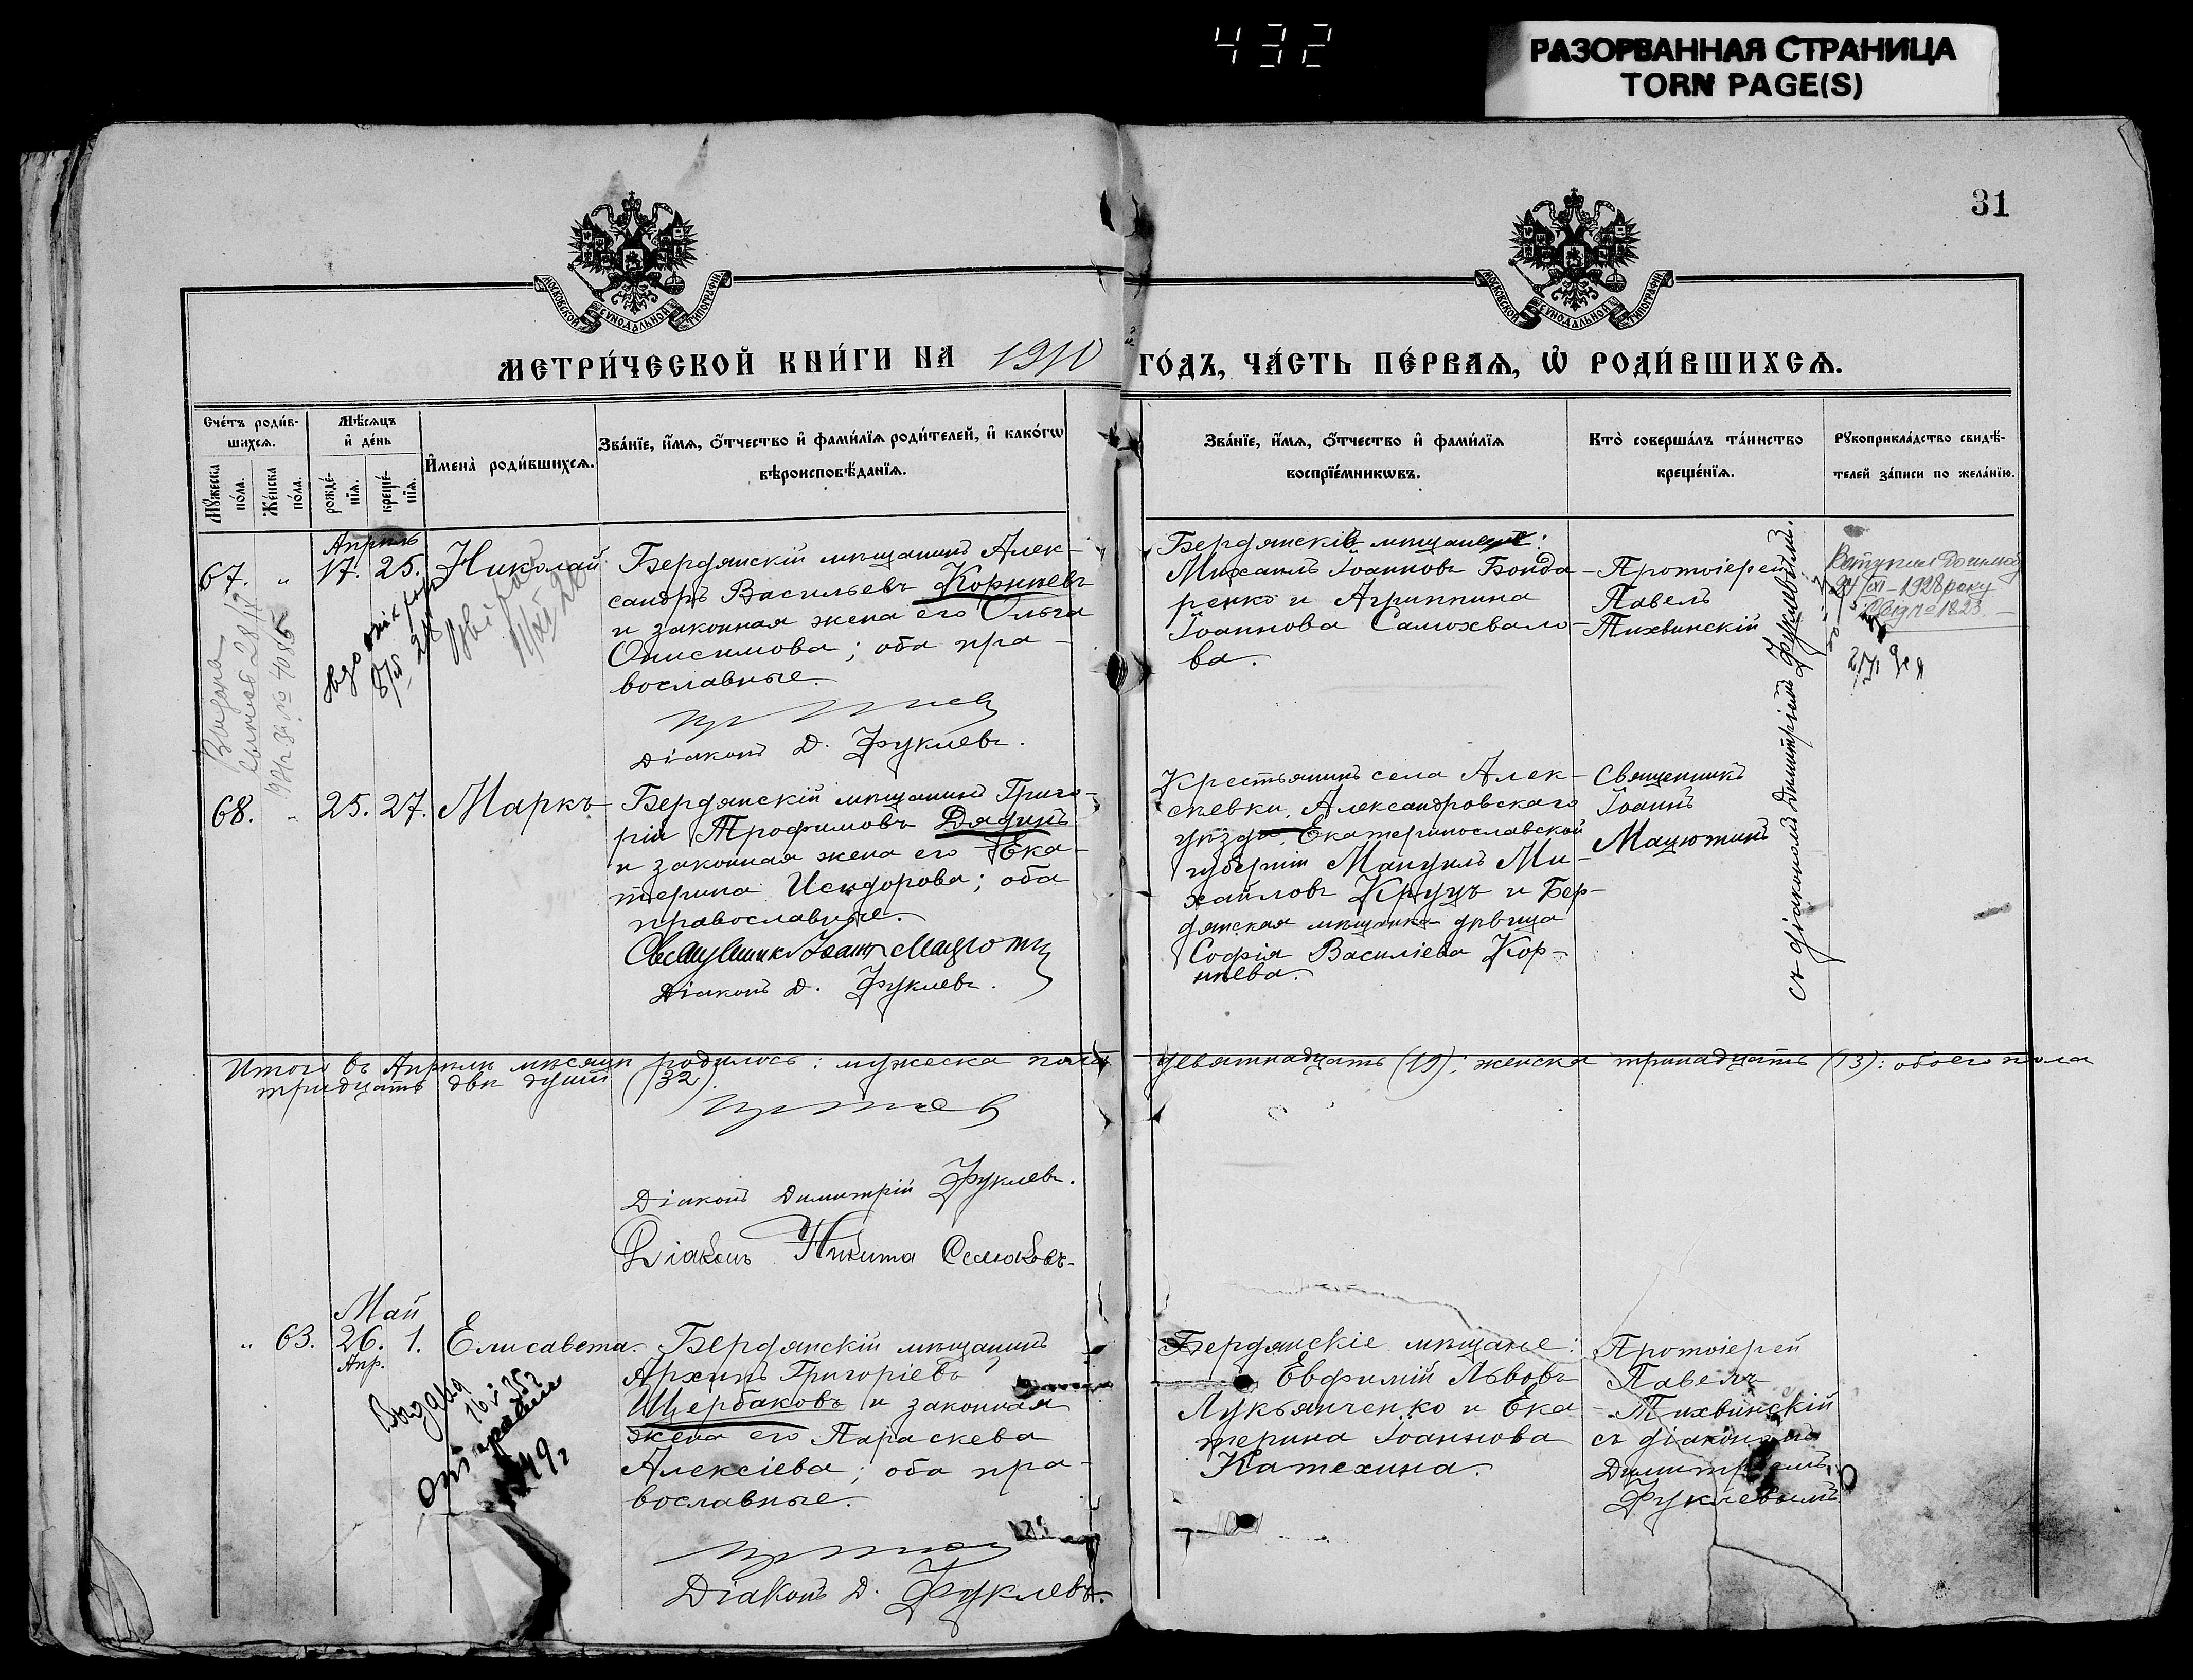 432
РАЗОРВАННАЯ СТРАНИЦА
TORN PAGE(S)
31
МОСКОВСКОЙ СѴНОДАЛЬНОЙ ТИПОГРАФІИ
МОСКОВСКОЙ СѴНОДАЛЬНОЙ ТИПОГРАФІИ
МЕТРИ́ЧЕСКОЙ КНИ́ГИ НА 1910 ГО́ДЪ, ЧА́СТЬ ПЕ́РВАѦ, Ѡ҆ РОДИ́ВШИХСѦ.
Сче́тъ роди́в-
шихсѧ.
Мѣ́сѧцъ
и҆ де́нь
Мꙋ́жеска
по́ла.
Же́нска
по́ла.
рожде́-
нїѧ.
креще́-
нїѧ.
И҆мена̀ роди́вшихсѧ.
Зва́нїе, и҆́мѧ, ѻ҆́тчество и҆ фами́лїѧ роди́телей, и҆ како́гѡ
вѣроисповѣ́данїѧ.
Зва́нїе, и҆́мѧ, ѻ҆́тчество и҆ фами́лїѧ
воспрїе́мникѡвъ.
Кто̀ соверша́лъ та́инство
креще́нїѧ.
Рꙋкоприкла́дство свидѣ́-
телей за́писи по жела́нїю.
Апрѣль
67. „ 17. 25. Николай
Бердянскій мѣщанинъ Алек-
сандръ Васильевъ Корнневъ
и законная жена его Ольга
Онисимова; оба пра-
вославные.
Діаконъ Д. Фуклевъ.
Бердянскіе мѣщане:
Михаилъ Іоанновъ Бонда-
ренко и Агриппина
Іоаннова Самохвало-
ва.
Протоіерей
Павелъ
Тихвинскій
съ діакономъ Димитріемъ Фуклевымъ.
24/XI-1928 року
№ 1823
68. „ 25. 27. Маркъ
Бердянскій мѣщанинъ Григо-
рій Трофимовъ Дядинъ
и законная жена его Ека-
терина Исидорова; оба
православные.
Священникъ Іоаннъ Мацютинъ
Діаконъ Д. Фуклевъ.
Крестьянинъ села Алек-
сѣевки, Александровскаго
уѣзда, Екатеринославской
губерніи Мануилъ Ми-
хайловъ Круцъ и Бер-
дянская мѣщанка дѣвица
Софія Василіева Кор-
нѣева.
Священникъ
Іоаннъ
Мацютинъ
Итого въ Апрѣлѣ мѣсяцѣ родилось: мужеска пола девятнадцать (19); женска тринадцать (13): обоего пола
тридцать двѣ души (32)
Діаконъ Димитрій Фуклевъ.
Діаконъ Никита Семоковъ
Май
„ 63. 26. 1. Елисавета
Апр.
Бердянскій мѣщанинъ
Архипъ Григоріевъ
Щербаковъ и законная
жена его Параскева
Алексіева; оба пра-
вославные.
Діаконъ Д. Фуклевъ.
Бердянскіе мѣщане:
Евфимій Львовъ
Лукьянченко и Ека-
терина Іоаннова
Катехина.
Протоіерей
Павелъ
Тихвинскій
съ діакономъ
Димитріемъ
Фуклевымъ.